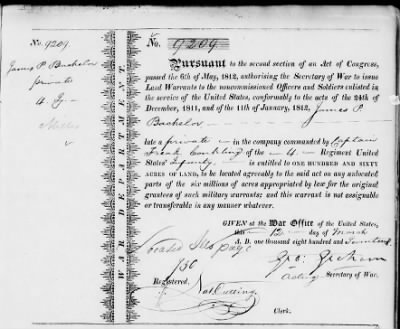 No. 9209.
James P Bachelor
private
4
WAR DEPARTMENT.
No. 9209
Pursuant to the second section of an Act of Congress,
passed the 6th of May, 1812, authorising the Secretary of War to issue
Land Warrants to the noncommissioned Officers and Soldiers enlisted in
the service of the United States, conformably to the acts of the 24th of
December, 1811, and of the 11th of January, 1812, James P
Bachelor
late a private in the company commanded by Captain
of the 4 Regiment United
States' Infantry is entitled to ONE HUNDRED AND SIXTY
ACRES OF LAND, to be located agreeably to the said act on any unlocated
parts of the six millions of acres appropriated by law for the original
grantees of such military warrants; and this warrant is not assignable
or transferable in any manner whatever.
GIVEN at the War Office of the United States,
this 12 day of March
A. D. one thousand eight hundred and
Located this page
136
Geo: Graham
acting Secretary of War.
Registered. Nat Cutting
Clerk.